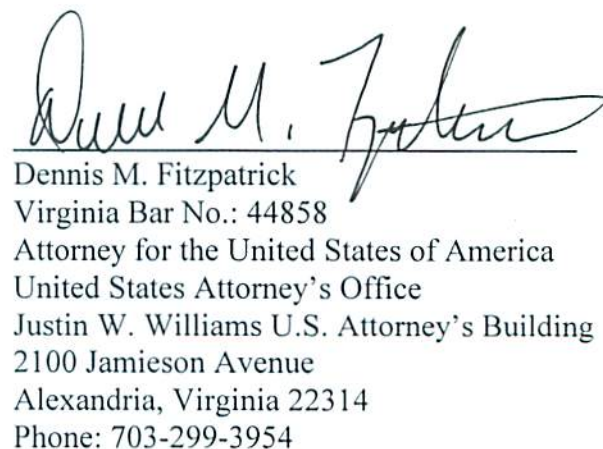 Dennis M. Fitzpatrick
Virginia Bar No.: 44858
Attorney for the United States of America
United States Attorney's Office
Justin W. Williams U.S. Attorney's Building
2100 Jamieson Avenue
Alexandria, Virginia 22314
Phone: 703-299-3954